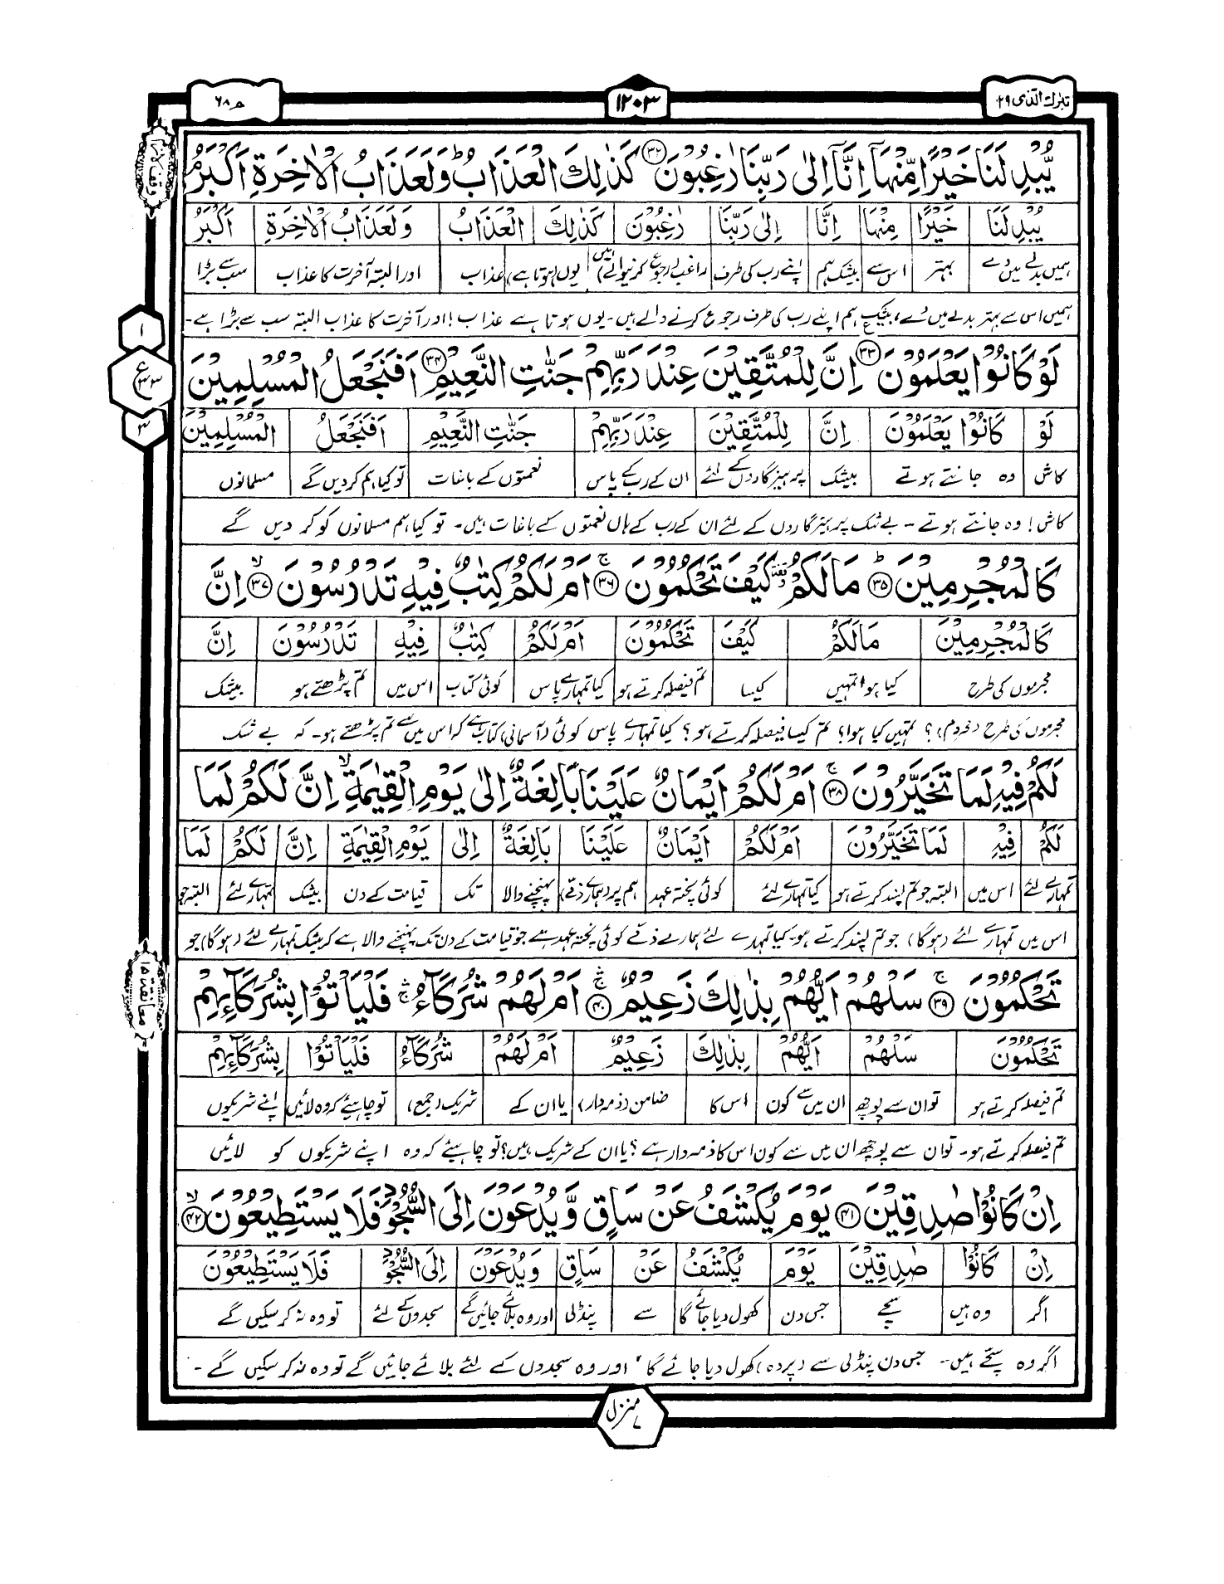 تبٰرك الذی ۲۹
۱۲۰۳
یُّبْدِلَنَا خَیْرًا مِّنْهَاۤ اِنَّاۤ اِلٰى رَبِّنَا رٰغِبُوْنَ ۳۲ كَذٰلِكَ الْعَذَابُ ؕ وَلَعَذَابُ الْاٰخِرَةِ اَكْبَرُ
یُّبْدِلَنَا خَیْرًا مِّنْهَاۤ اِنَّاۤ اِلٰى رَبِّنَا رٰغِبُوْنَ كَذٰلِكَ الْعَذَابُ وَلَعَذَابُ الْاٰخِرَةِ اَكْبَرُ
ہمیں بدلے میں دے بہتر اس سے بیشک ہم اپنے رب کی طرف راغب (رجوع کرنیوالے) ہیں یوں (ہوتا ہے) عذاب اور البتہ آخرت کا عذاب سب سے بڑا
ہمیں اس سے بہتر بدلے میں دے، بیشک ہم اپنے رب کی طرف رجوع کرنے والے ہیں۔ یوں ہوتا ہے عذاب! اور آخرت کا عذاب البتہ سب سے بڑا ہے۔
لَوْ كَانُوْا یَعْلَمُوْنَ ۳۳ اِنَّ لِلْمُتَّقِیْنَ عِنْدَ رَبِّهِمْ جَنّٰتِ النَّعِیْمِ ۳۴ اَفَنَجْعَلُ الْمُسْلِمِیْنَ
لَوْ كَانُوْا یَعْلَمُوْنَ اِنَّ لِلْمُتَّقِیْنَ عِنْدَ رَبِّهِمْ جَنّٰتِ النَّعِیْمِ اَفَنَجْعَلُ الْمُسْلِمِیْنَ
کاش وہ جانتے ہوتے بیشک پرہیزگاروں کے لئے ان کے رب کے پاس نعمتوں کے باغات تو کیا ہم کر دیں گے مسلمانوں
کاش! وہ جانتے ہوتے۔ بے شک پرہیزگاروں کے لئے ان کے رب کے ہاں نعمتوں کے باغات ہیں۔ تو کیا ہم مسلمانوں کو کر دیں گے
كَالْمُجْرِمِیْنَ ؕ ۳۵ مَا لَكُمْ كَیْفَ تَحْكُمُوْنَ ۚ ۳۶ اَمْ لَكُمْ كِتٰبٌ فِیْهِ تَدْرُسُوْنَ ۙ ۳۷ اِنَّ
كَالْمُجْرِمِیْنَ مَا لَكُمْ كَیْفَ تَحْكُمُوْنَ اَمْ لَكُمْ كِتٰبٌ فِیْهِ تَدْرُسُوْنَ اِنَّ
مجرموں کی طرح کیا ہوا تمہیں کیسا تم فیصلہ کرتے ہو کیا تمہارے پاس کوئی کتاب اس میں تم پڑھتے ہو بیشک
مجرموں کی طرح (محروم)؟ تمہیں کیا ہوا؟ تم کیسا فیصلہ کرتے ہو؟ کیا تمہارے پاس کوئی (آسمانی) کتاب ہے کہ اس میں سے تم پڑھتے ہو۔ کہ بے شک
لَكُمْ فِیْهِ لَمَا تَخَیَّرُوْنَ ۚ ۳۸ اَمْ لَكُمْ اَیْمَانٌ عَلَیْنَا بَالِغَةٌ اِلٰى یَوْمِ الْقِیٰمَةِ ۙ اِنَّ لَكُمْ لَمَا
لَكُمْ فِیْهِ لَمَا تَخَیَّرُوْنَ اَمْ لَكُمْ اَیْمَانٌ عَلَیْنَا بَالِغَةٌ اِلٰى یَوْمِ الْقِیٰمَةِ اِنَّ لَكُمْ لَمَا
تمہارے لئے اس میں البتہ جو تم پسند کرتے ہو کیا تمہارے لئے کوئی پختہ عہد ہم پر (ہمارے ذمے) پہنچنے والا تک قیامت کے دن بیشک تمہارے لئے البتہ جو
اس میں تمہارے لئے (ہوگا) جو تم پسند کرتے ہو، کیا تمہارے لئے ہمارے ذمے کوئی پختہ عہد ہے جو قیامت کے دن تک پہنچنے والا ہے کہ بیشک تمہارے لئے (ہوگا) جو
تَحْكُمُوْنَ ۚ ۳۹ سَلْهُمْ اَیُّهُمْ بِذٰلِكَ زَعِیْمٌ ۴۰ اَمْ لَهُمْ شُرَكَآءُ فَلْیَاْتُوْا بِشُرَكَآئِهِمْ
تَحْكُمُوْنَ سَلْهُمْ اَیُّهُمْ بِذٰلِكَ زَعِیْمٌ اَمْ لَهُمْ شُرَكَآءُ فَلْیَاْتُوْا بِشُرَكَآئِهِمْ
تم فیصلہ کرتے ہو تو ان سے پوچھ ان میں سے کون اس کا ضامن (ذمہ دار) یا ان کے شریک (جمع) تو چاہیئے کہ وہ لائیں اپنے شریکوں
تم فیصلہ کرتے ہو۔ تو ان سے پوچھ ان میں سے کون اس کا ذمہ دار ہے؟ یا ان کے شریک ہیں؟ تو چاہیئے کہ وہ اپنے شریکوں کو لائیں
اِنْ كَانُوْا صٰدِقِیْنَ ۴۱ یَوْمَ یُكْشَفُ عَنْ سَاقٍ وَّیُدْعَوْنَ اِلَى السُّجُوْدِ فَلَا یَسْتَطِیْعُوْنَ ۙ ۴۲
اِنْ كَانُوْا صٰدِقِیْنَ یَوْمَ یُكْشَفُ عَنْ سَاقٍ وَّیُدْعَوْنَ اِلَى السُّجُوْدِ فَلَا یَسْتَطِیْعُوْنَ
اگر وہ ہیں سچے جس دن کھول دیا جائے گا سے پنڈلی اور وہ بلائے جائیں گے سجدوں کے لئے تو وہ نہ کر سکیں گے
اگر وہ سچے ہیں۔ جس دن پنڈلی سے (پردہ) کھول دیا جائے گا، اور وہ سجدوں کے لئے بلائے جائیں گے تو وہ نہ کر سکیں گے۔
منزل ۷